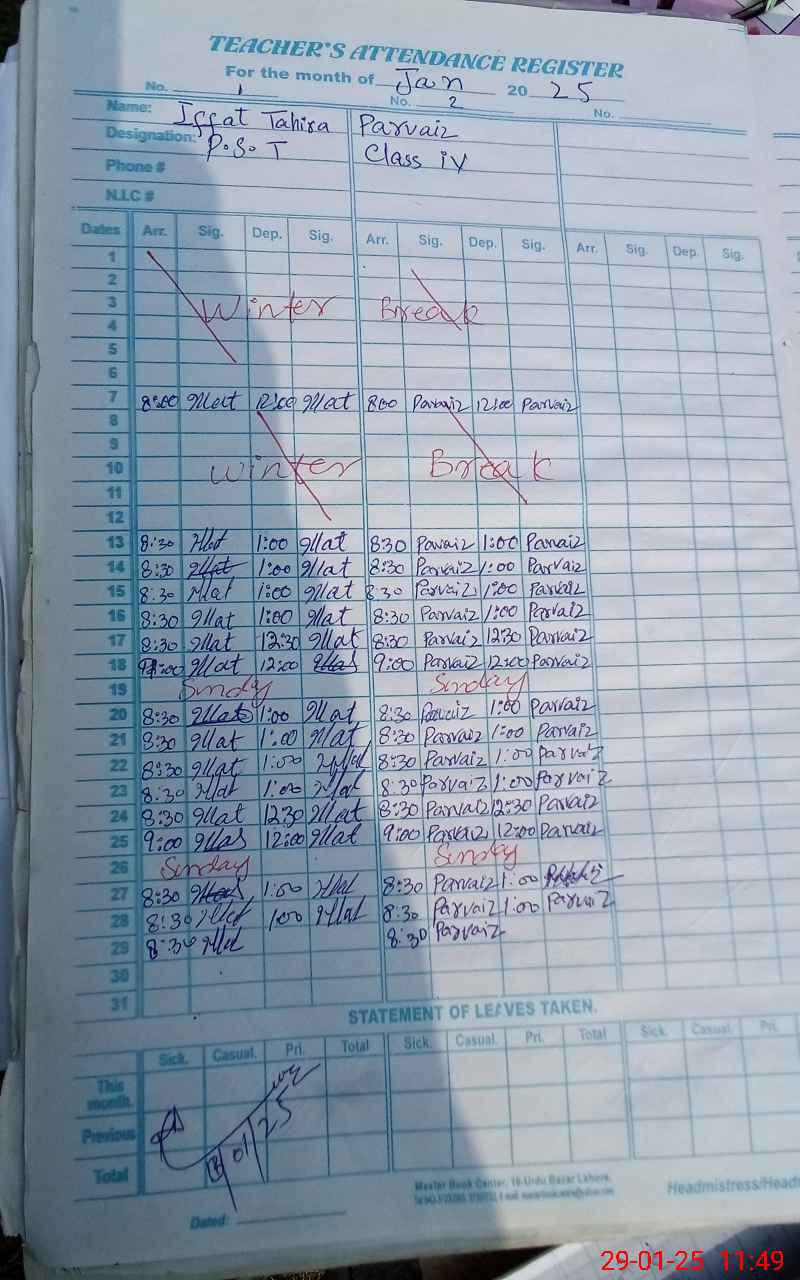 TEACHER'S ATTENDANCE REGISTER
For the month of Jan 2025
No. 1 No. 2 No.
Name: Iffat Tahira Parvaiz
Designation: P.S.T Class iv
Phone #
N.I.C #
Dates Arr. Sig. Dep. Sig. Arr. Sig. Dep. Sig. Arr. Sig. Dep. Sig.
1
2
3 Winter Break
4
5
6
7 8:00 Iffat 12:00 Iffat 8:00 Parvaiz 12:00 Parvaiz
8
9
10 Winter Break
11
12
13 8:30 Iffat 1:00 Iffat 830 Parvaiz 1:00 Parvaiz
14 8:30 Iffat 1:00 Iffat 8:30 Parvaiz 1:00 Parvaiz
15 8:30 Iffat 1:00 Iffat 8:30 Parvaiz 1:00 Parvaiz
16 8:30 Iffat 1:00 Iffat 8:30 Parvaiz 1:00 Parvaiz
17 8:30 Iffat 12:30 Iffat 8:30 Parvaiz 12:30 Parvaiz
18 9:00 Iffat 12:00 Iffat 9:00 Parvaiz 12:00 Parvaiz
19 Sunday Sunday
20 8:30 Iffat 1:00 Iffat 8:30 Parvaiz 1:00 Parvaiz
21 8:30 Iffat 1:00 Iffat 8:30 Parvaiz 1:00 Parvaiz
22 8:30 Iffat 1:00 Iffat 8:30 Parvaiz 1:00 Parvaiz
23 8:30 Iffat 1:00 Iffat 8:30 Parvaiz 1:00 Parvaiz
24 8:30 Iffat 12:30 Iffat 8:30 Parvaiz 12:30 Parvaiz
25 9:00 Iffat 12:00 Iffat 9:00 Parvaiz 12:00 Parvaiz
26 Sunday Sunday
27 8:30 Iffat 1:00 Iffat 8:30 Parvaiz 1:00
28 8:30 Iffat 1:00 Iffat 8:30 Parvaiz 1:00 Parvaiz
29 8:30 Iffat 8:30 Parvaiz
30
31
STATEMENT OF LEAVES TAKEN.
Sick. Casual. Pri. Total Sick. Casual. Pri. Total Sick. Casual. Pri.
This month.
Previous
Total
01/25
Master Book Center, 18-Urdu Bazar Lahore.
Headmistress/Head
Dated:
29-01-25 11:49